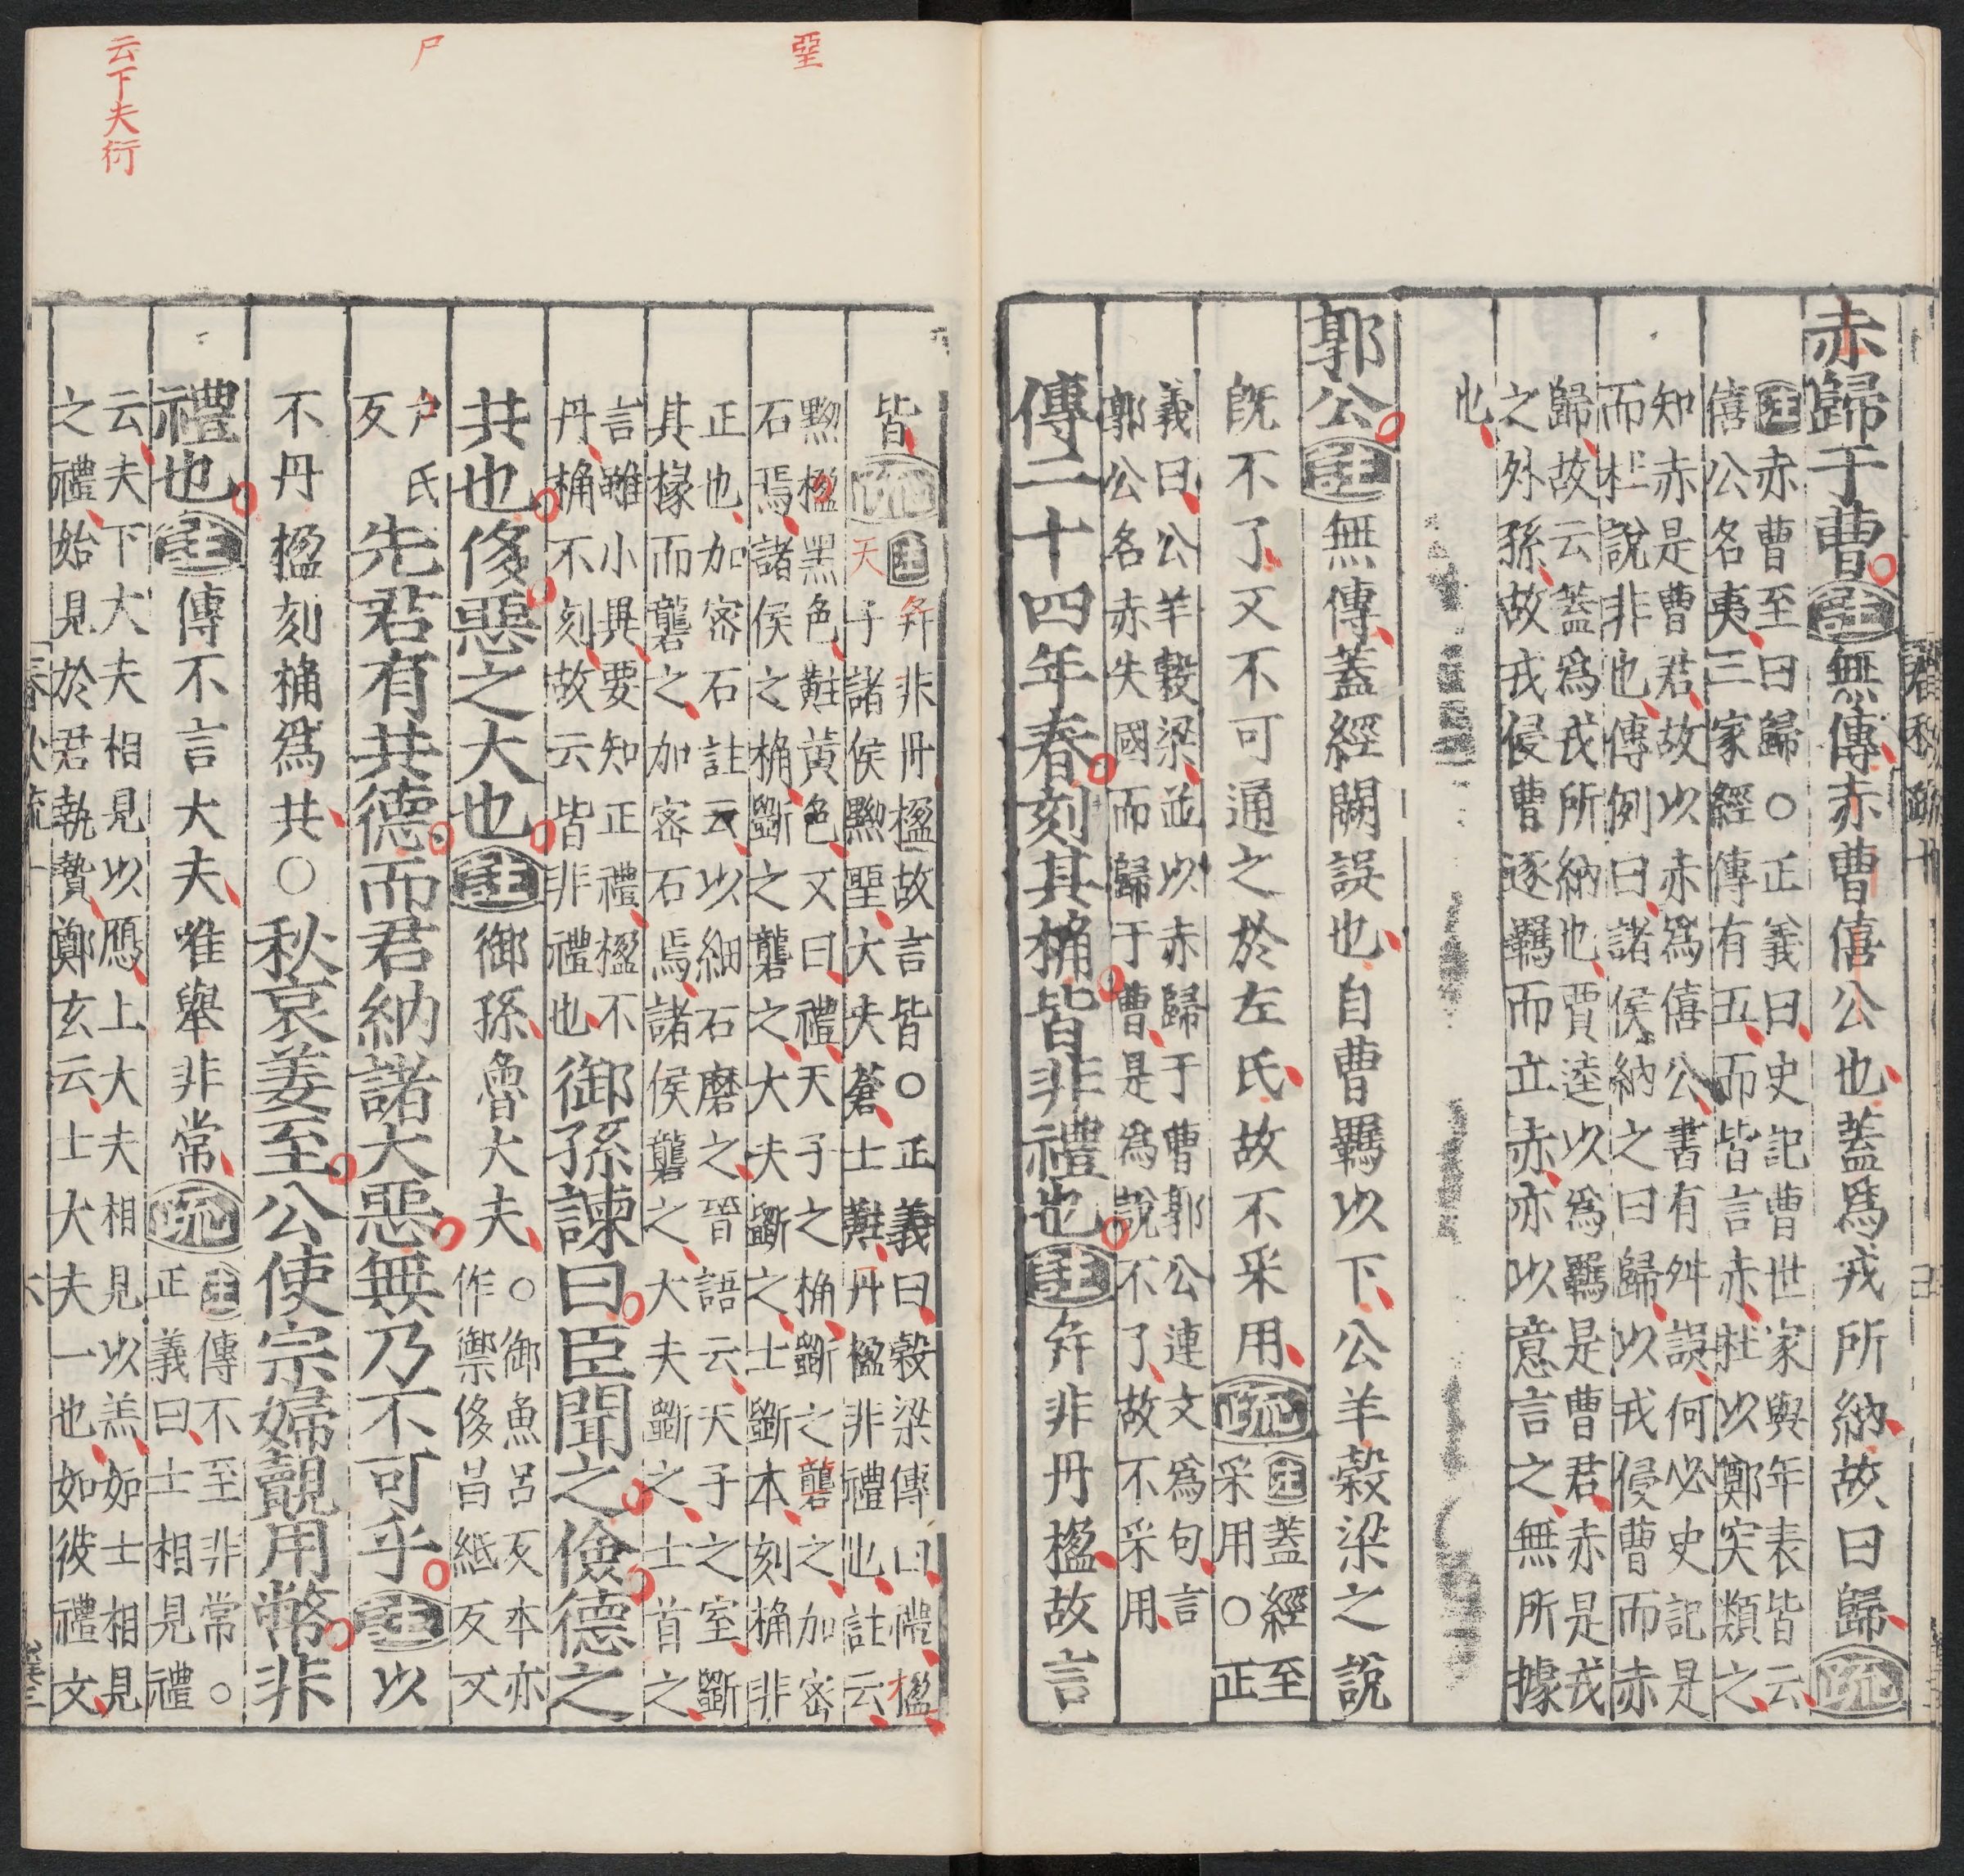 赤歸于曹註無傳赤曹僖公也蓋爲戎所納故曰歸疏
註赤曹至曰歸○正義曰史記曹世家與年表皆云
僖公名夷三家經傳有五而皆言赤杜以鄭突類之
知赤是曹君故以赤爲僖公書有舛誤何必史記是
而杜說非也傳例曰諸侯納之曰歸以戎侵曹而赤
歸故云蓋爲戎所納也賈逵以爲羈是曹君赤是戎
之外孫故戎侵曹逐羈而立赤亦以意言之無所據
也
郭公註無傳蓋經闕誤也自曹羈以下公羊穀梁之說
既不了又不可通之於左氏故不采用疏
註蓋經至
采用○正
義曰公羊穀梁並以赤歸于曹郭公連文爲句言
郭公名赤失國而歸于曹是爲說不了故不采用
傳二十四年春刻其桷皆非禮也註并非丹楹故言
皆疏
註并非丹楹故言皆○正義曰穀梁傳曰禮楹
天子諸侯黝堊大夫蒼士黈丹楹非禮也註云
黝楹黑色黈黃色又曰禮天子之桷斲之礱之加密
石焉諸侯之桷斲之礱之大夫斲之士斲本刻桷非
正也加密石註云以細石磨之晉語云天子之室斲
其椽而礱之加密石焉諸侯礱之大夫斲之士首之
言雖小異要知正禮楹不
丹桷不刻故云皆非禮也
御孫諫曰臣聞之儉德之
共也侈惡之大也註御孫魯大夫
○御魚呂反本亦
作禦侈昌紙反又
尸氏
反
先君有共德而君納諸大惡無乃不可乎註以
不丹楹刻桷爲共○秋哀姜至公使宗婦覿用幣非
禮也註傳不言大夫唯舉非常疏
註傳不至非常○
正義曰士相見禮
云夫下大夫相見以鴈上大夫相見以羔如士相見
之禮始見於君執贄鄭玄云士大夫一也如彼禮文
堊
尸
云下夫衍